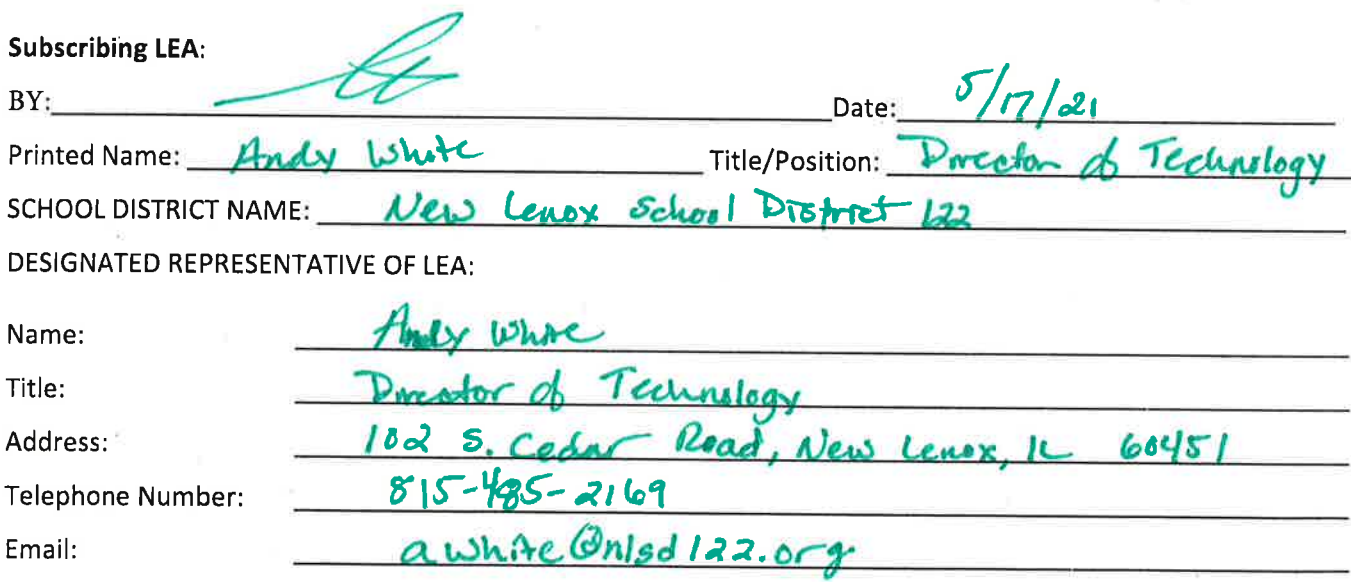 Subscribing LEA:
BY: Date: 5/17/21
Printed Name: Andy White Title/Position: Director of Technology
SCHOOL DISTRICT NAME: New Lenox School District 122
DESIGNATED REPRESENTATIVE OF LEA:
Name: Andy White
Title: Director of Technology
Address: 102 S. Cedar Road, New Lenox, IL 60451
Telephone Number: 815-485-2169
Email: awhite@nlsd122.org